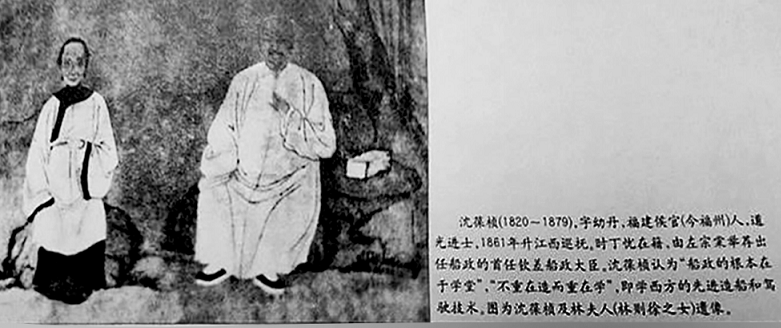 沈葆桢(1820～1879),字幼丹,福建侯官(今福州)人,道
光进士,1861年升江西巡抚。时丁忧在籍,由左宗棠举荐出
任船政的首任钦差船政大臣。沈葆桢认为“船政的根本在
于学堂”,“不重在造而重在学”,即学西方的先进造船和驾
驶技术。图为沈葆桢及林夫人(林则徐之女)遗像。